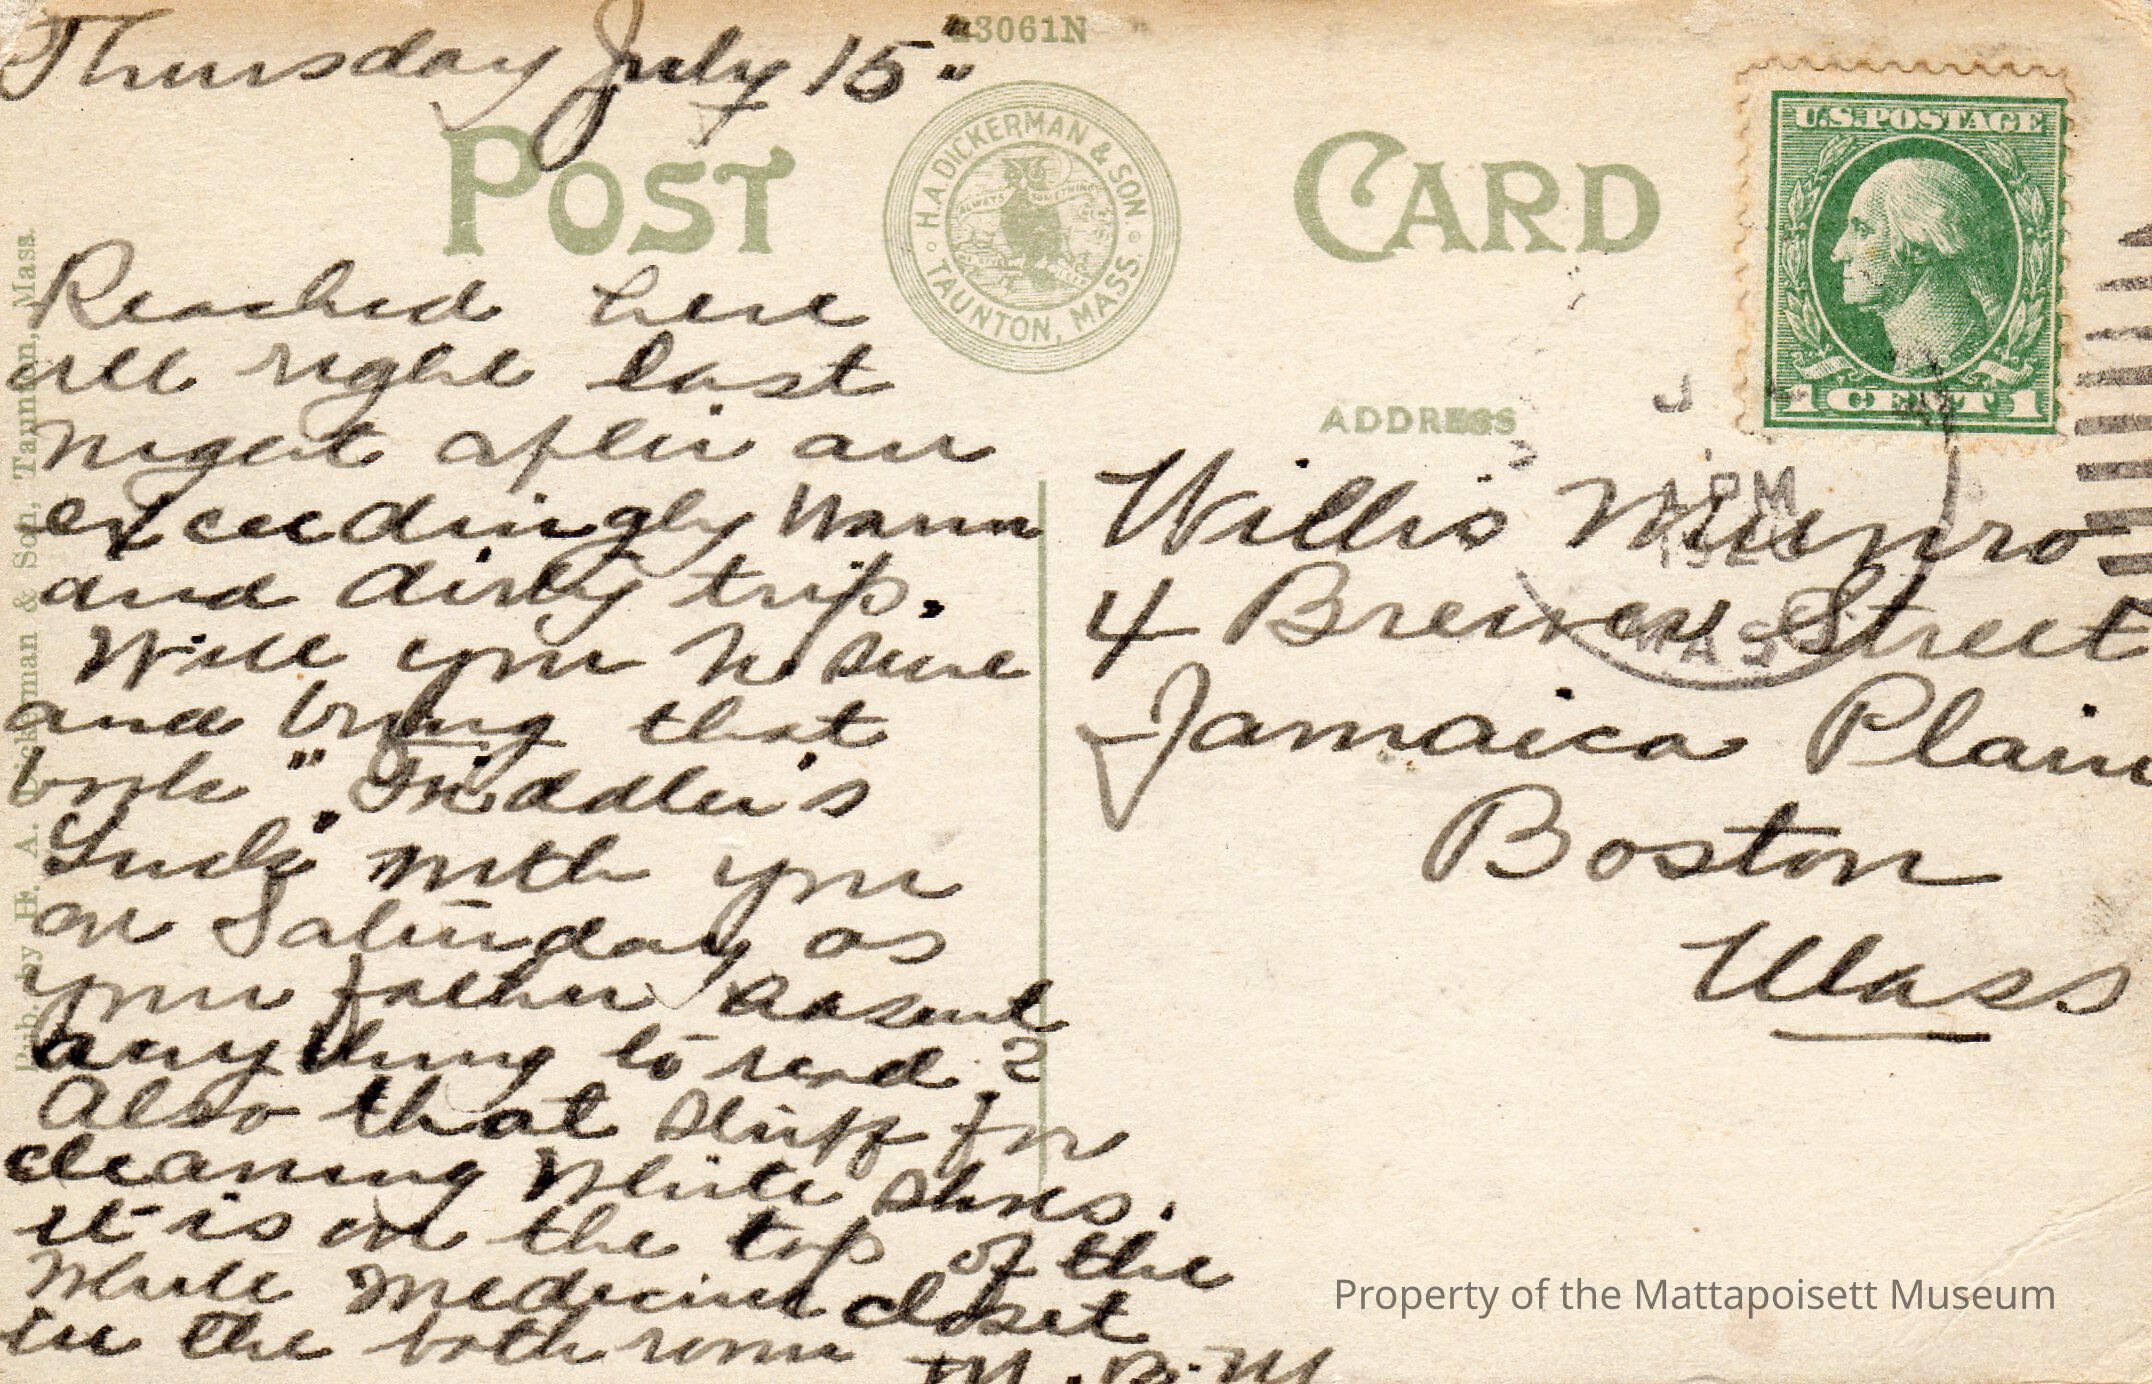 Thursday July 15"
23061N
POST CARD
H. A. DICKERMAN & SON
TAUNTON, MASS.
ALWAYS SOMETHING
U.S. POSTAGE
1 CENT 1
Pub. by H. A. Dickerman & Son, Taunton, Mass.
Reached here
all right last
night after an
exceedingly warm
and dirty trip.
Will you be sure
and bring that
book "Fiddler's
Luck" with you
on Saturday as
your father hasent
anything to read?
Also that stuff for
cleaning white shoes.
it is on the top of the
white medicine closet
in the bathroom
M. B. M
ADDRESS
PM
MASS
Willis Munro
4 Brewer Street
Jamaica Plain
Boston
Mass
Property of the Mattapoisett Museum